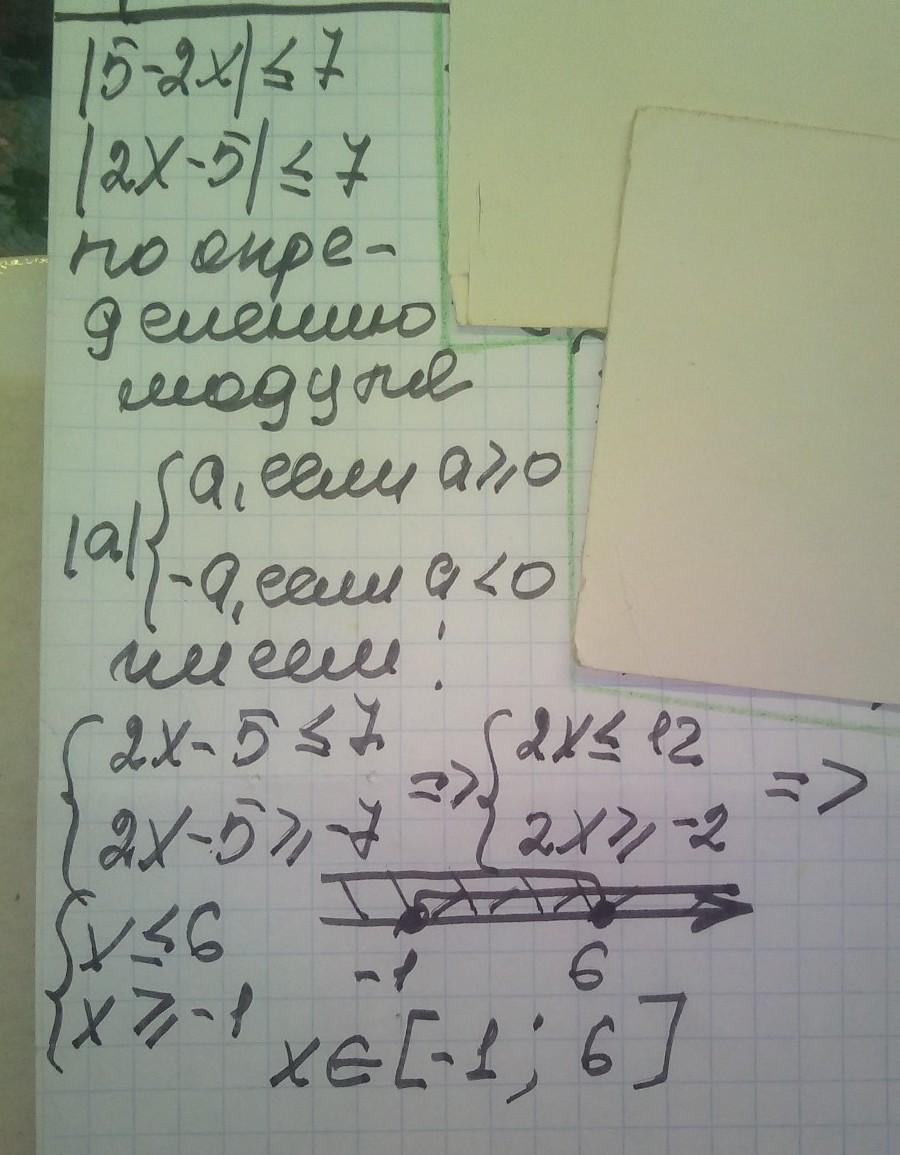 |5-2x| ≤ 7
|2x-5| ≤ 7
по опре-
делению
модуля
|a| { a, если a ⩾ 0
-a, если a < 0
имеем :
{ 2x - 5 ≤ 7
2x - 5 ⩾ -7
=> { 2x ≤ 12
2x ⩾ -2
=>
{ x ≤ 6
x ⩾ -1
-1 6
x ∈ [-1 ; 6]